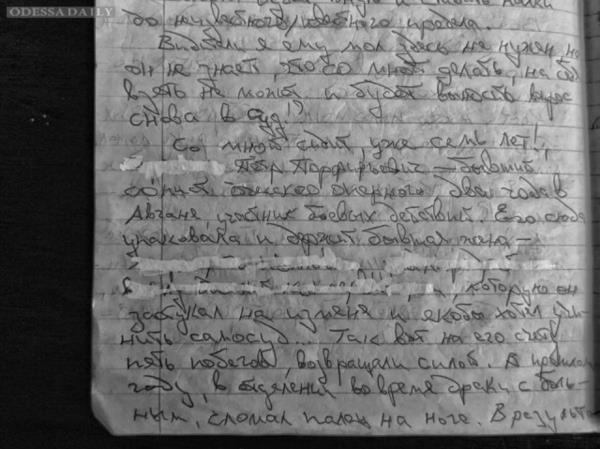 ODESSA DAILY
до
предела.
Видать я ему мол здесь не нужен но
он не знает, что со мной делать, на себя
взять не может и будет выносить вопрос
снова в суд!?
Со мной сидит, уже семь лет!,
Пётр Порфирьевич — бывший
два года в
Афгане, учасник боевых действий. Его сюда
упаковала и держит бывшая жена —
, которую он
застукал на измене и якобы хотел учи-
нить самосуд... Так вот на его счету
пять побегов, возвращали силой. В прошлом
году, в отделении во время драки с боль-
ным, сломал палец на ноге. В результа-